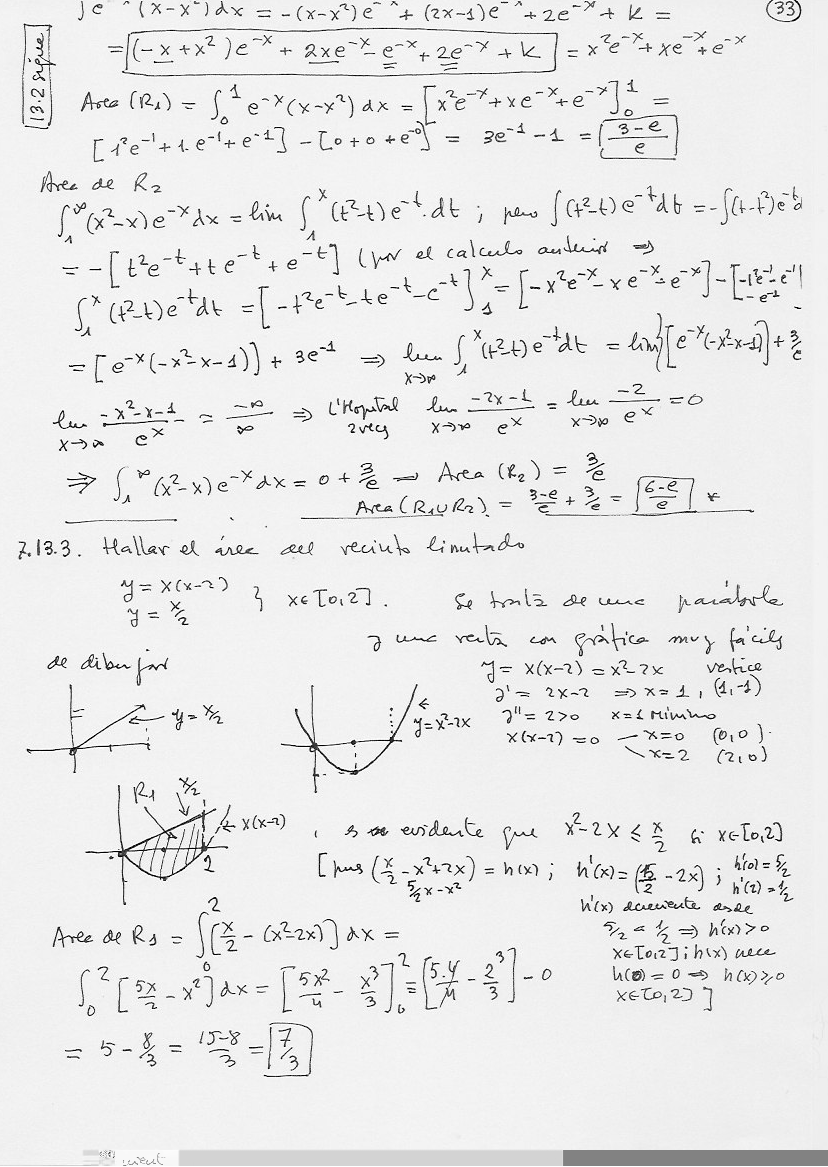 33
13.2 sigue
∫e^{-x}(x-x²)dx = -(x-x²)e^{-x} + (2x-1)e^{-x} + 2e^{-x} + K =
= (-x+x²)e^{-x} + 2xe^{-x} - e^{-x} + 2e^{-x} + K = x²e^{-x} + xe^{-x} + e^{-x}
Area (R₁) = ∫₀¹ e^{-x}(x-x²) dx = [x²e^{-x} + xe^{-x} + e^{-x}]₀¹ =
[1²e^{-1} + 1.e^{-1} + e^{-1}] - [0+0+e^{-0}] = 3e^{-1} - 1 = (3-e)/e
Area de R₂
∫₁^∞ (x²-x)e^{-x}dx = lim ∫₁^x (t²-t)e^{-t}.dt ; pero ∫(t²-t)e^{-t}dt = -∫(t-t²)e^{-t}d
= -[t²e^{-t} + te^{-t} + e^{-t}] (por el calculo anterior ⇒
∫₁^x (t²-t)e^{-t}dt = [-t²e^{-t} - te^{-t} - e^{-t}]₁^x = [-x²e^{-x} - xe^{-x} - e^{-x}] - [-1²e^{-1} - e^{-1} - e^{-1}]
= [e^{-x}(-x²-x-1)] + 3e^{-1} ⇒ lim_{x→∞} ∫₁^x (t²-t)e^{-t}dt = lim [e^{-x}(-x²-x-1)] + 3/e
lim_{x→∞} (-x²-x-1)/e^x = -∞/∞ ⇒ L'Hopital 2 veces lim_{x→∞} (-2x-1)/e^x = lim_{x→∞} -2/e^x = 0
⇒ ∫₁^∞ (x²-x)e^{-x}dx = 0 + 3/e ⇒ Area (R₂) = 3/e
Area (R₁∪R₂) = (3-e)/e + 3/e = (6-e)/e *
7.13.3. Hallar el área del recinto limitado
y = x(x-2)
y = x/2 } x∈[0,2]. Se trata de una parábola
y una recta con gráfica muy fácil
de dibujar
y = x(x-2) = x²-2x vertice
y' = 2x-2 ⇒ x=1, (1,-1)
y'' = 2>0 x=1 Mínimo
x(x-2) = 0 x=0 (0,0)
x=2 (2,0)
y = x/2
y = x²-2x
R₁
x/2
x(x-2)
2
, es evidente que x²-2x ≤ x/2 si x∈[0,2]
[pues (x/2 - x²+2x) = h(x) ; h'(x) = (5/2 - 2x) ; h'(0) = 5/2
5/2x - x²
h'(2) = 1/2
h'(x) decreciente desde
5/2 a 1/2 ⇒ h'(x)>0
x∈[0,2] ; h(x) crece
h(0) = 0 ⇒ h(x)≥0
x∈[0,2] ]
Area de R₁ = ∫₀² [x/2 - (x²-2x)] dx =
∫₀² [5x/2 - x²] dx = [5x²/4 - x³/3]₀² = [5.4/4 - 2³/3] - 0
= 5 - 8/3 = (15-8)/3 = 7/3